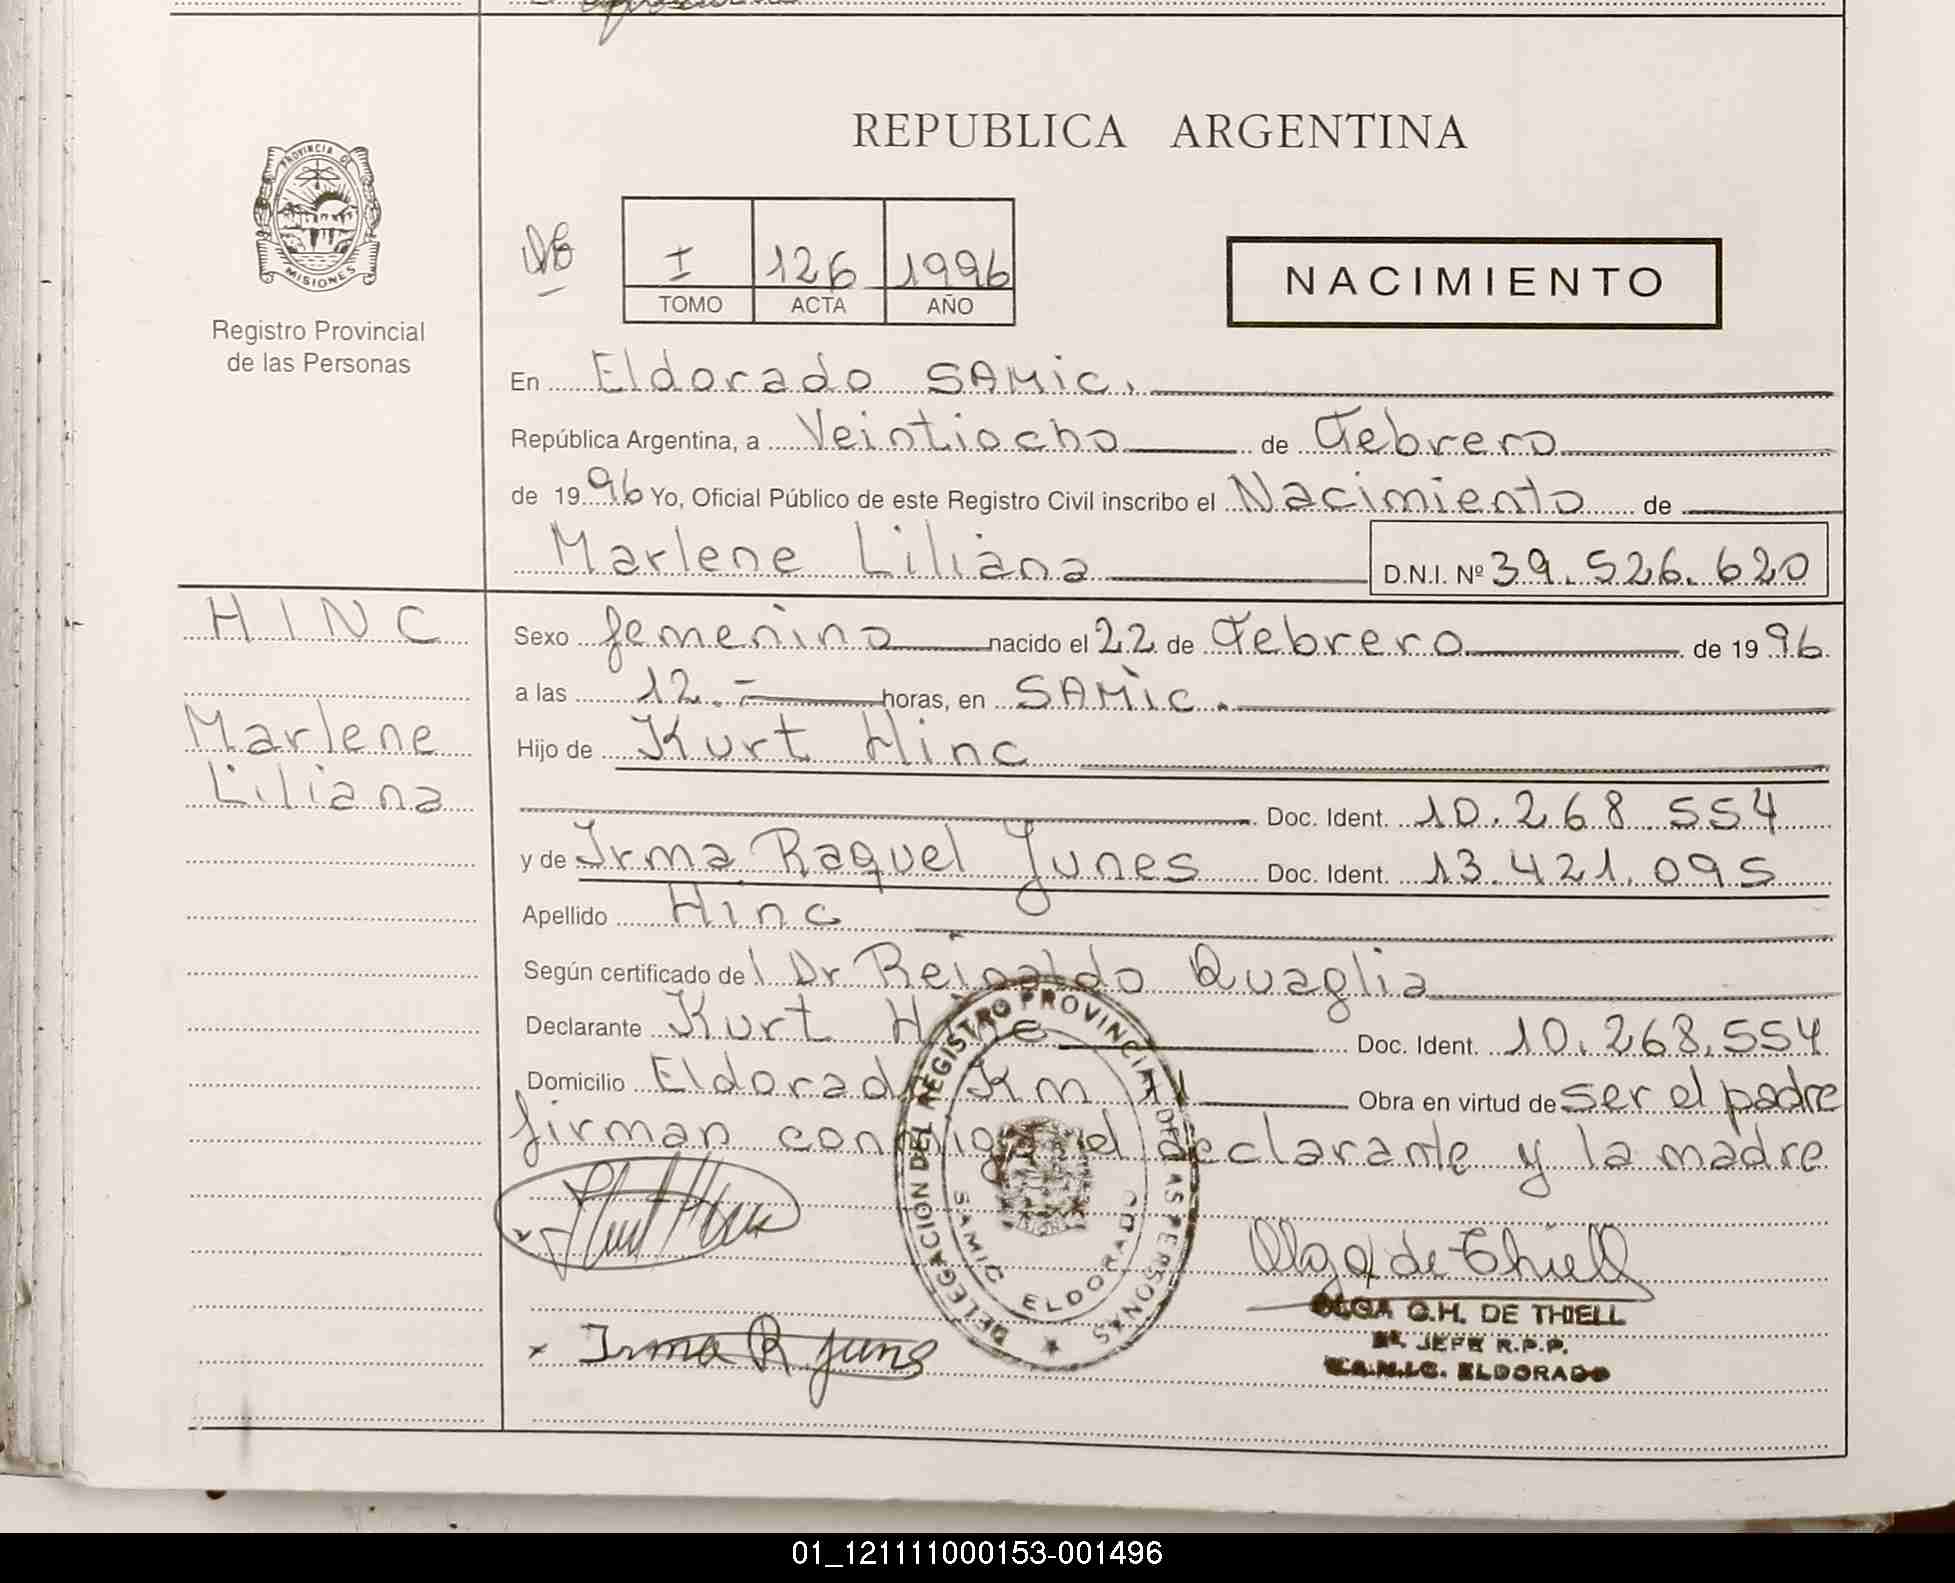 REPUBLICA ARGENTINA
PROVINCIA DE
MISIONES
Registro Provincial
de las Personas
I 126 1996
TOMO ACTA AÑO
NACIMIENTO
En Eldorado SAMic.
República Argentina, a Veintiocho de Febrero
de 1996 Yo, Oficial Público de este Registro Civil inscribo el Nacimiento de
Marlene Liliana D.N.I. Nº 39.526.620
HINC
Marlene
Liliana
Sexo femenino nacido el 22 de Febrero de 1996.
a las 12.- horas, en SAMic.
Hijo de Kurt Hinc
Doc. Ident. 10.268.554
y de Irma Raquel Junes Doc. Ident. 13.421.095
Apellido Hinc
Según certificado del Dr Reinaldo Quaglia
Declarante Kurt Hinc Doc. Ident. 10.268.554
Domicilio Eldorado Km 11 Obra en virtud de ser el padre
firman conmigo el declarante y la madre
DELEGACION DEL REGISTRO PROVINCIAL DE LAS PERSONAS
SAMIC ELDORADO
Olga de Thiell
OLGA G.H. DE THIELL
JEFE R.P.P.
S.A.M.I.C. ELDORADO
Irma R Junes
01_121111000153-001496